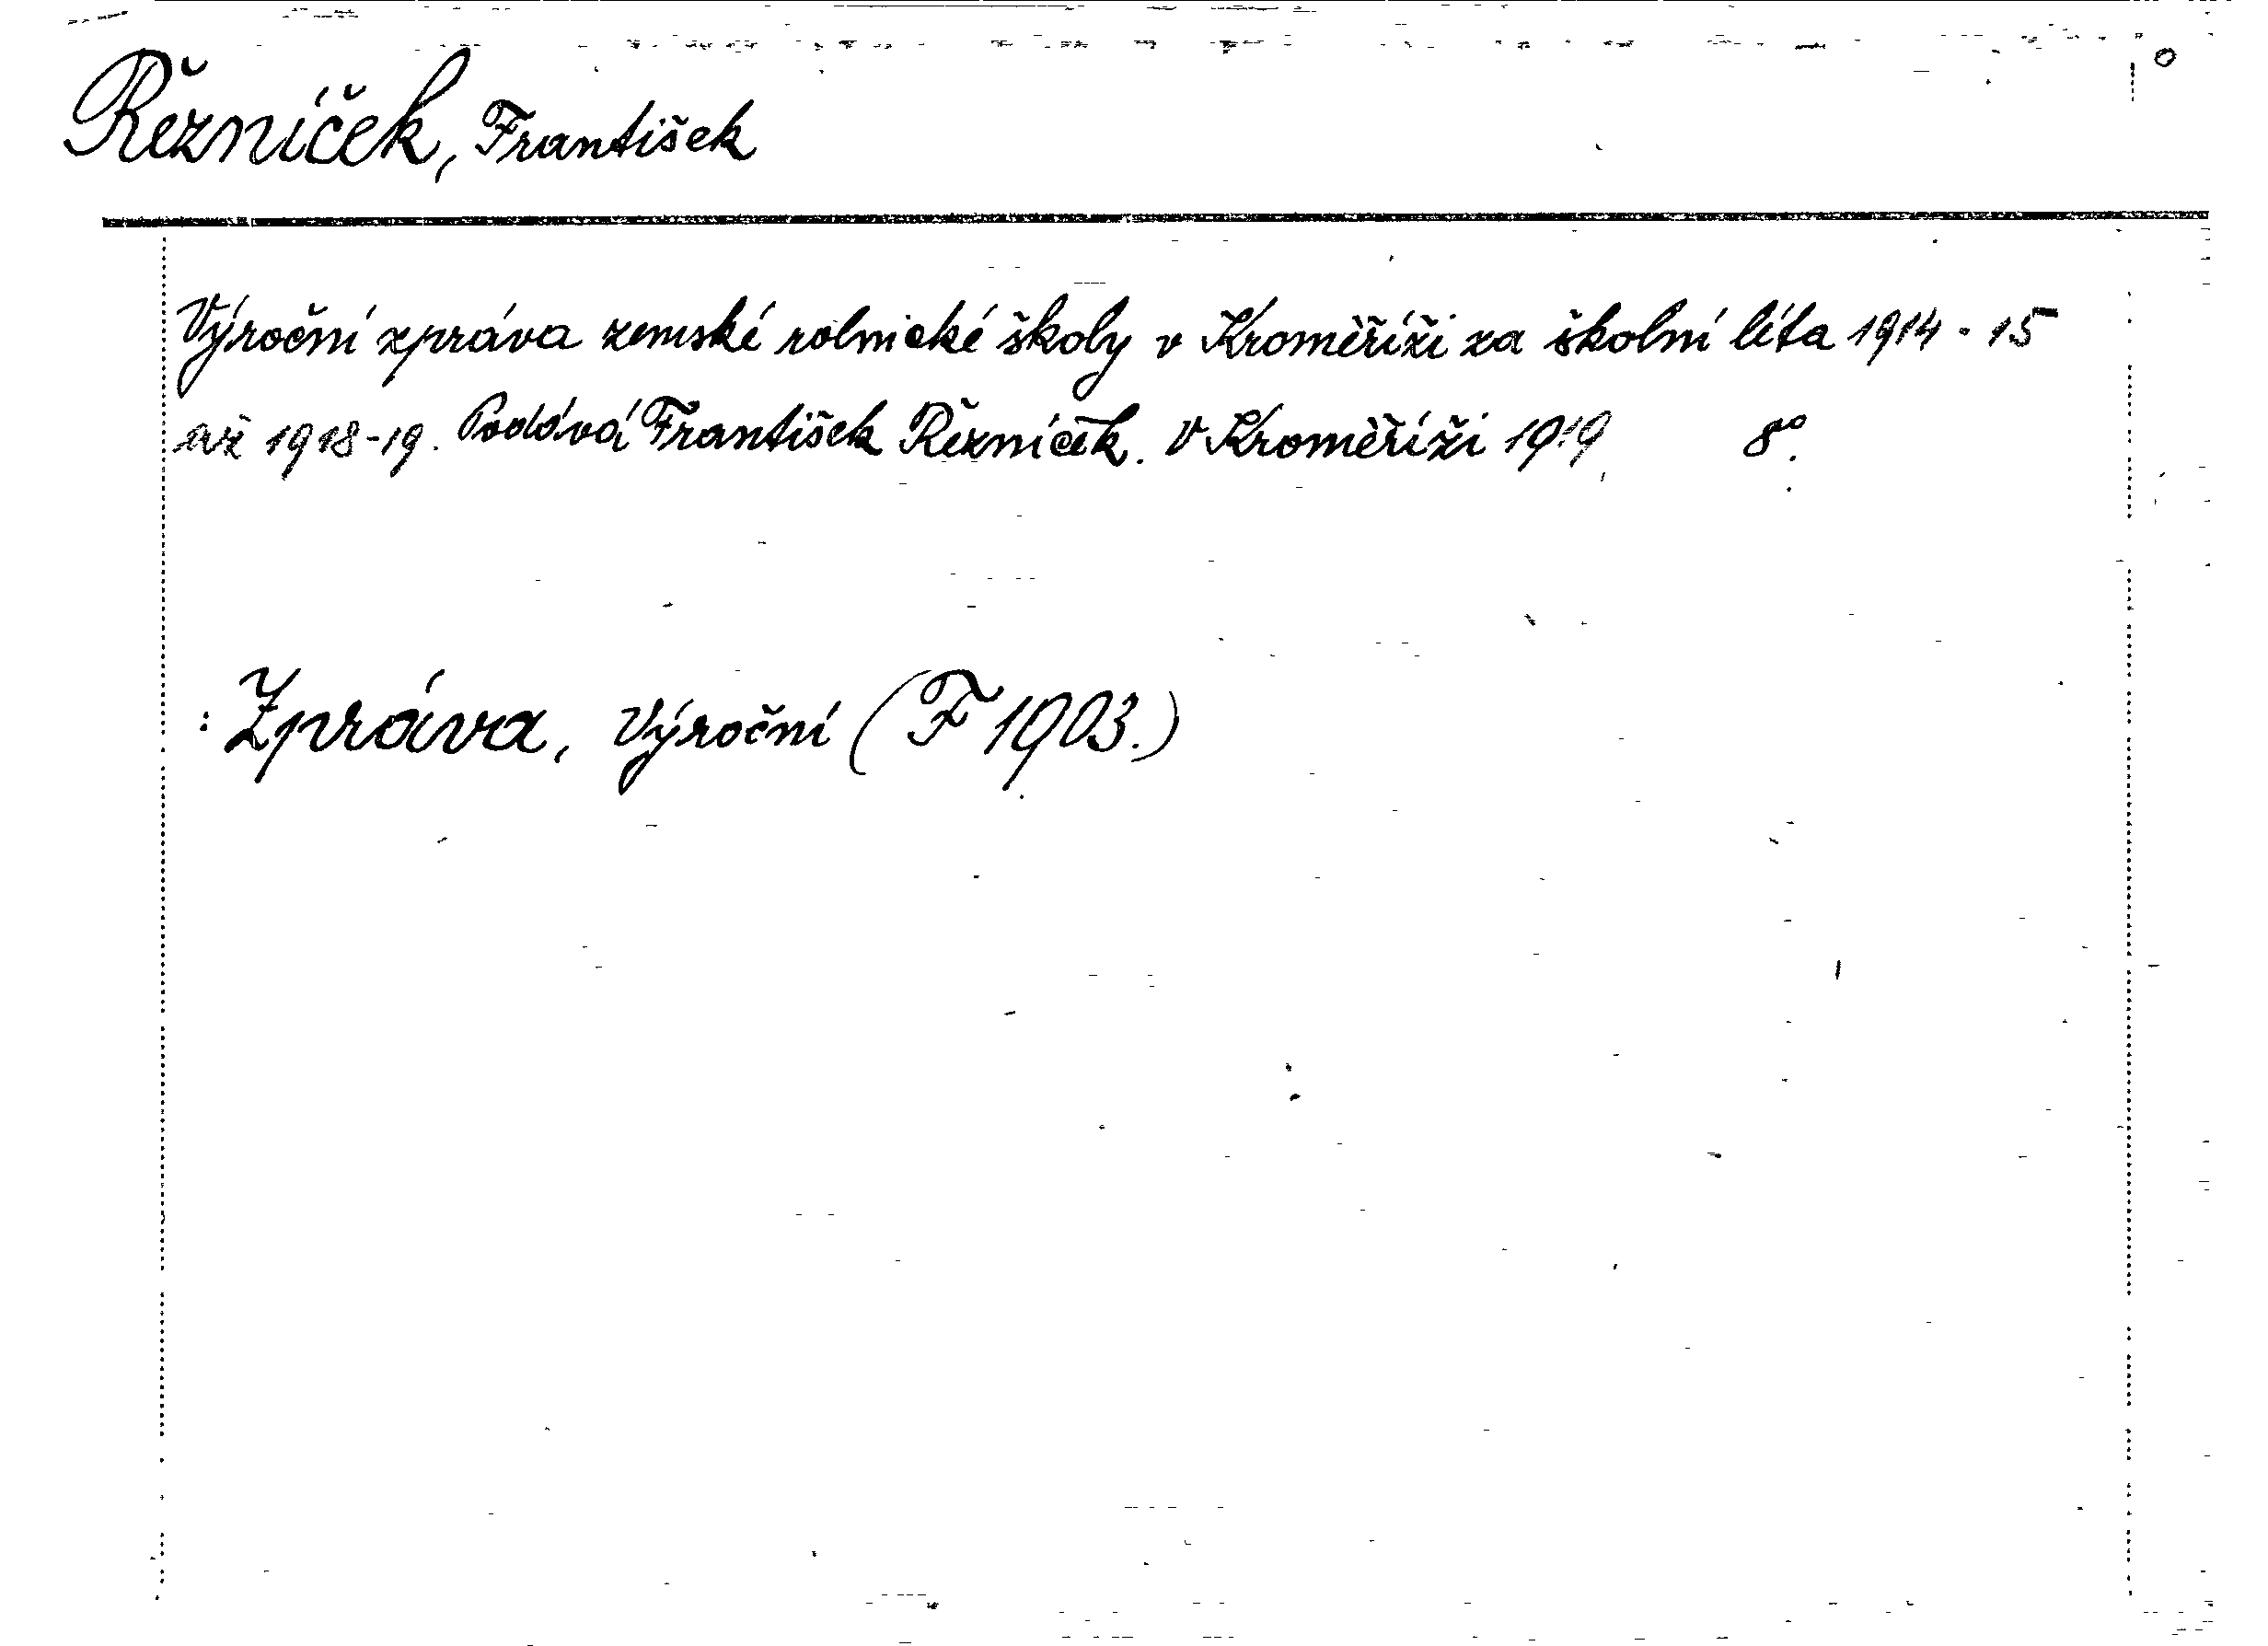 Řezníček, František
Výroční zpráva zemské rolnické školy v Kroměříži za školní léta 1914-15
až 1918-19. Podává František Řezníček. V Kroměříži 1919 8°.
: Zpráva, výroční (F 1903.)